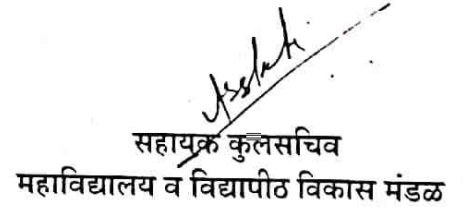 सहायक कुलसचिव
महाविद्यालय व विद्यापीठ विकास मंडळ